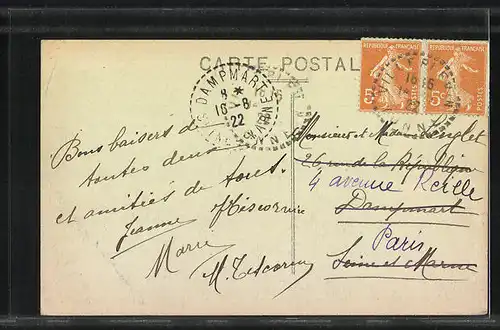 CARTE POSTALE
REPUBLIQUE FRANÇAISE REPUBLIQUE FRANÇAISE
5c POSTES 5c POSTES
DAMPMART
8 *
16 - 8
22
16
22
Bons baisers de
toutes deux
et amitiés de tous.
Jeanne
Marie
Monsieur et Madame
26 rue de la République
4 avenue
Dampmart
Paris
Seine et Marne